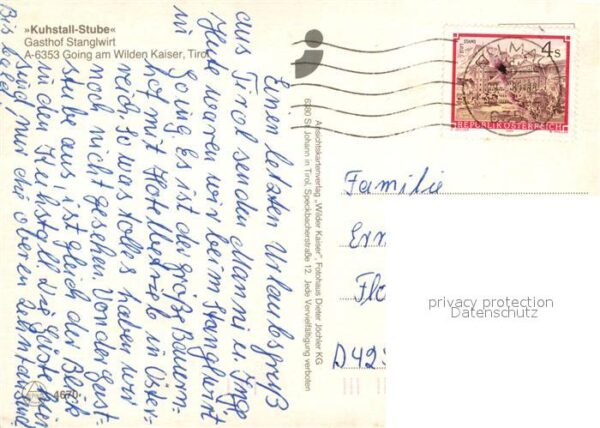 »Kuhstall-Stube«
Gasthof Stanglwirt
A-6353 Going am Wilden Kaiser, Tirol
Einen letzten Urlaubsgruß
aus Tirol senden Manni u. Inge
Heute waren wir beim Stanglwirt
in Going. Es ist der größte Bauern-
hof mit Hotelbetrieb in Öster-
reich. So was tolles haben wir
noch nicht gesehen. Von der Gast-
stube aus ist gleich der Blick
in den Kuhstall.
sind nur die oberen Zehntausend
Bis bald
4670
Ansichtskartenverlag „Wilder Kaiser", Fotohaus Dieter Jöchler KG
6380 St. Johann in Tirol, Speckbacherstraße 12. Jede Vervielfältigung verboten
4 S
REPUBLIK ÖSTERREICH
Familie
Ern
Flo
D 42
privacy protection
Datenschutz